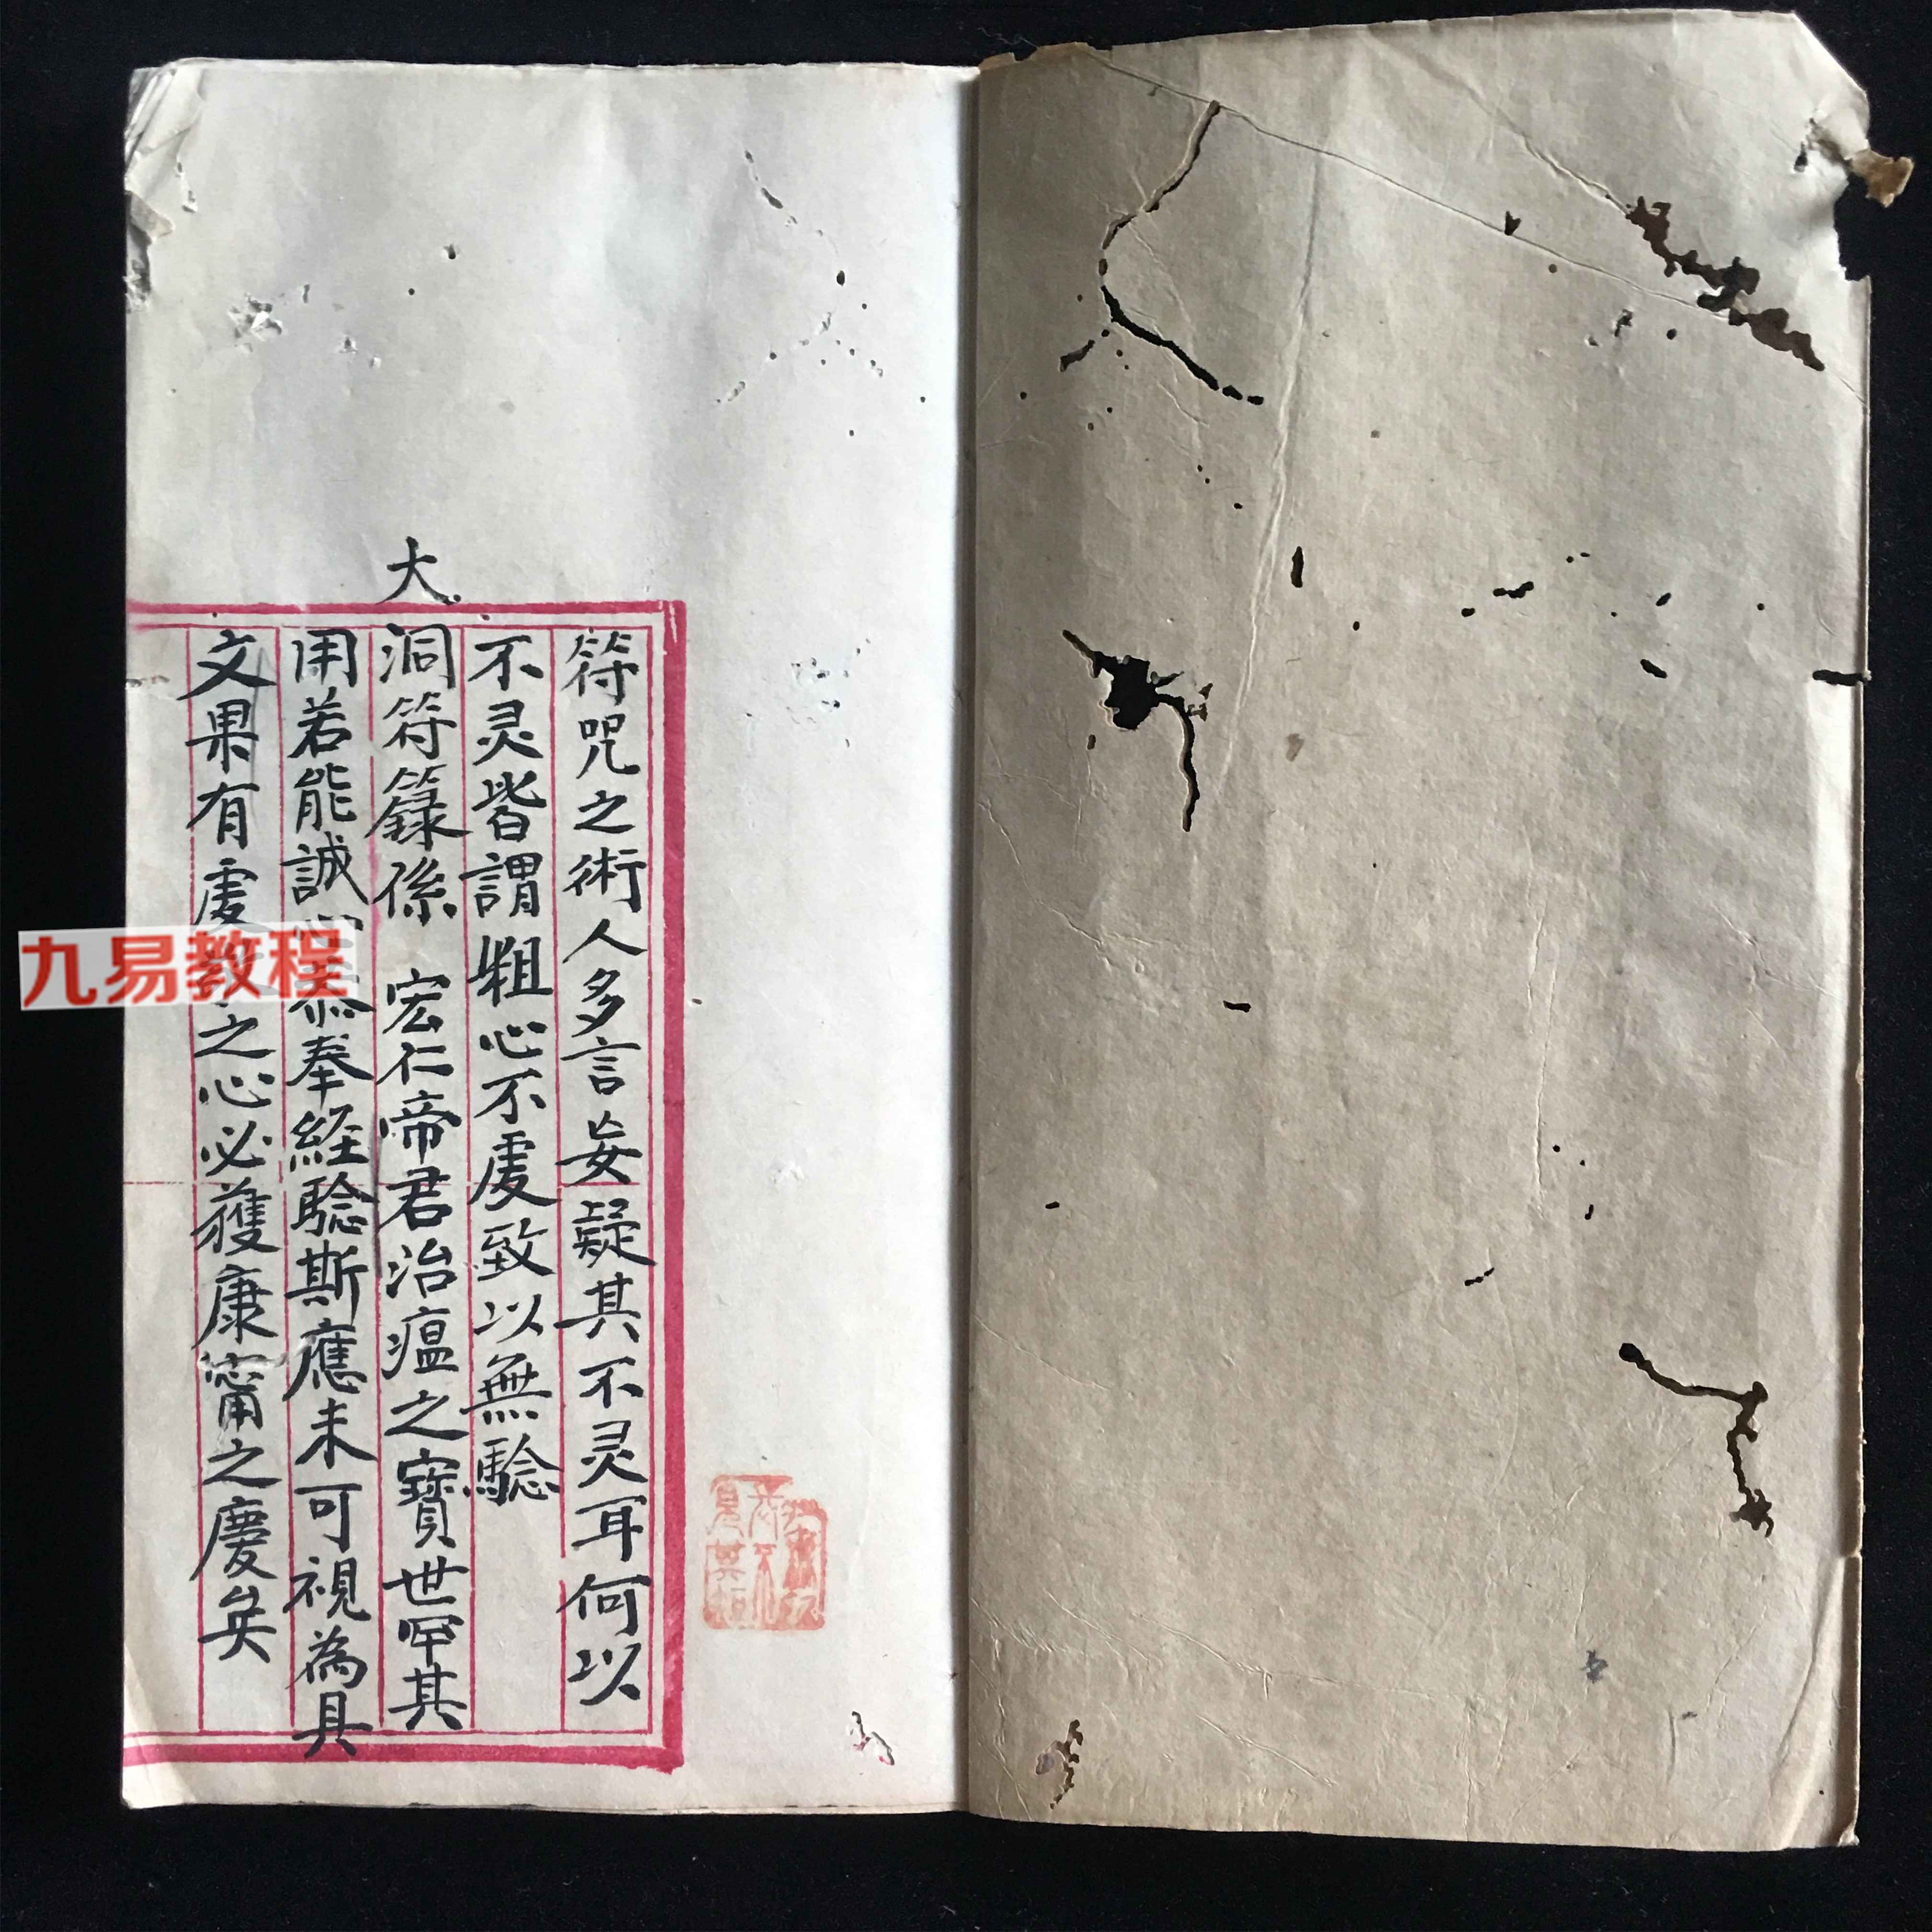 符咒之術人多言妄疑其不灵耳何以
不灵皆謂粗心不虔致以無驗
大洞符籙係 宏仁帝君治瘟之寶世罕其
用若能誠恭奉經驗斯應未可視為具
文果有虔之心必獲康甯之慶矣
九易教程